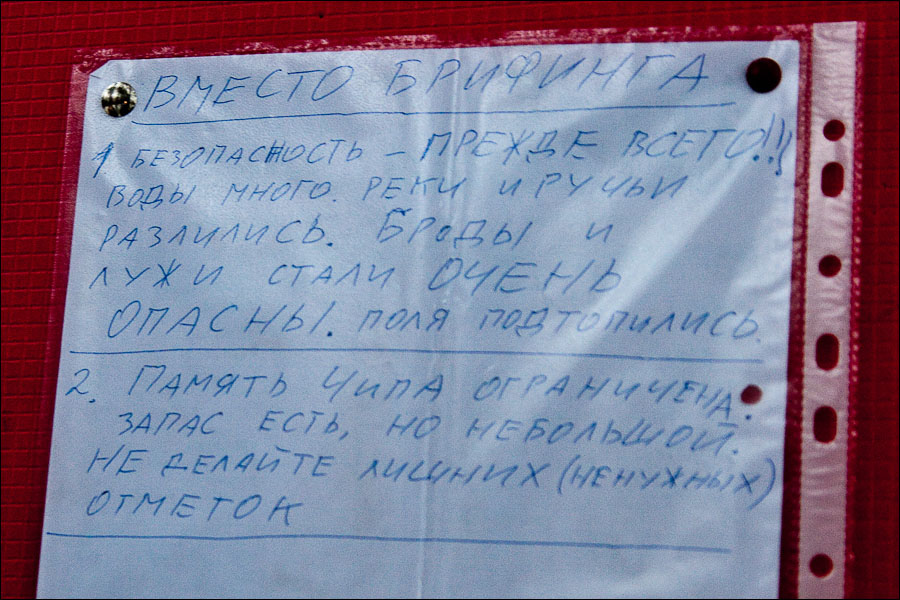 ВМЕСТО БРИФИНГА
1 БЕЗОПАСНОСТЬ – ПРЕЖДЕ ВСЕГО!!!
ВОДЫ МНОГО. РЕКИ И РУЧЬИ
РАЗЛИЛИСЬ. БРОДЫ И
ЛУЖИ СТАЛИ ОЧЕНЬ
ОПАСНЫ. ПОЛЯ ПОДТОПИЛИСЬ.
2. ПАМЯТЬ ЧИПА ОГРАНИЧЕНА.
ЗАПАС ЕСТЬ, НО НЕБОЛЬШОЙ.
НЕ ДЕЛАЙТЕ ЛИШНИХ (НЕНУЖНЫХ)
ОТМЕТОК